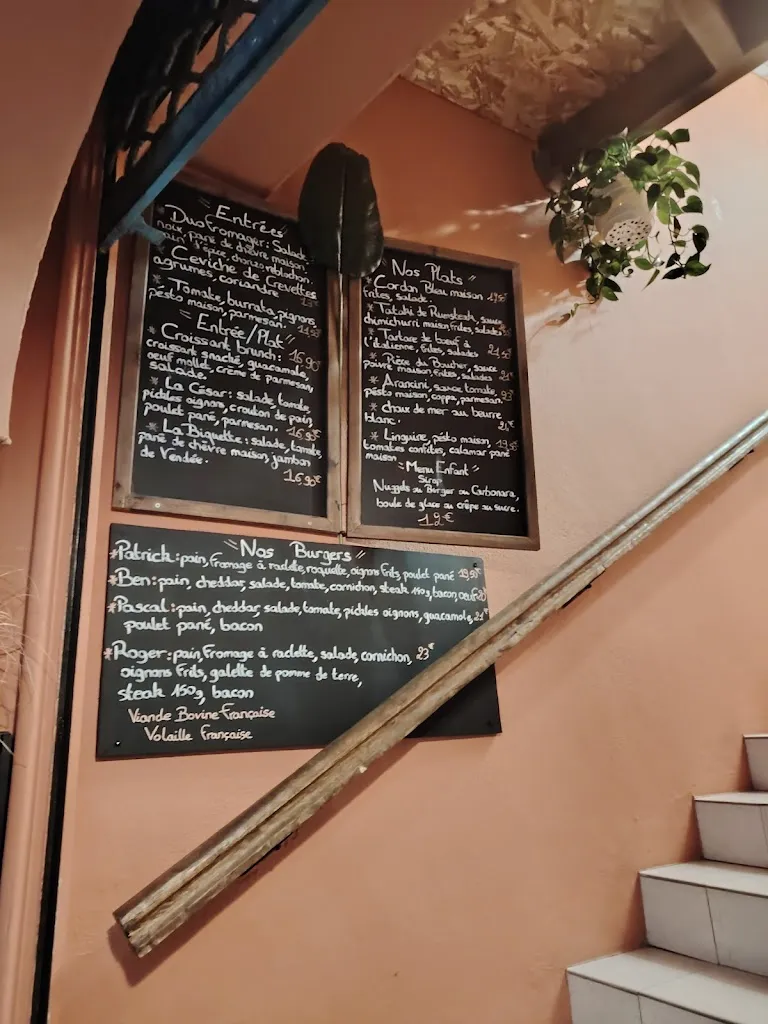 " Entrées "
* Duo Fromager: Salade,
noix, pané de chèvre maison,
pain d'épice, chorizo reblochon.
* Ceviche de Crevettes
agrumes, coriandre
* Tomate, burrata, pignons,
pésto maison, parmesan.
" Entrée/Plat "
* Croissant brunch: 16.90€
croissant snacké, guacamole,
oeuf mollet, crème de parmesan,
salade.
* La César: salade, tomate,
pickles oignons, crouton de pain,
poulet pané, parmesan. 16.90€
* La Biquette: salade, tomate,
pané de chèvre maison, jambon
de Vendée.
16.90€
" Nos Plats "
* Cordon Bleu maison
frites, salade.
* Tataki de Rumsteak, sauce
chimichurri maison, frites, salades
* Tartare de boeuf à
l'italienne, frites, salades
* Pièce du Boucher, sauce
poivre maison, frites, salades 21€
* Arancini, sauce tomate,
pésto maison, coppa, parmesan.
* choux de mer au beurre
blanc.
* Linguine, pésto maison,
tomates confites, calamar pané
maison
" Menu Enfant "
Sirop
Nuggets ou Burger ou Carbonara,
boule de glace ou crêpe au sucre.
12€
" Nos Burgers "
*Patrick: pain, fromage à raclette, roquette, oignons frits, poulet pané
*Ben: pain, cheddar, salade, tomate, cornichon, steak 150g, bacon, oeuf
*Pascal: pain, cheddar, salade, tomate, pickles oignons, guacamole, 21€
poulet pané, bacon
*Roger: pain, fromage à raclette, salade, cornichon, 23€
oignons frits, galette de pomme de terre,
steak 150g, bacon
Viande Bovine Française
Volaille Française